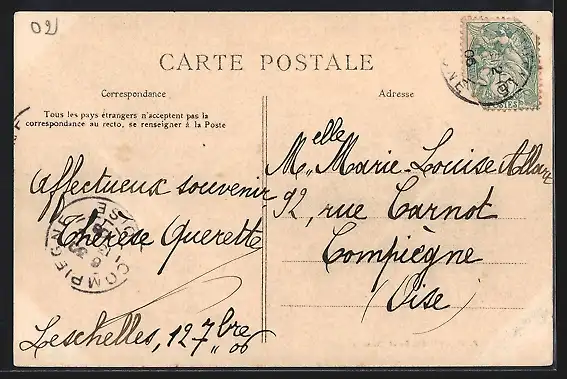 02
CARTE POSTALE
Correspondance
Adresse
Tous les pays étrangers n'acceptent pas la
correspondance au recto, se renseigner à la Poste
Affectueux souvenir
Thérèse Querette
Leschelles, 12 7bre 06
Melle Marie-Louise
92, rue Carnot
Compiègne
(Oise)
COMPIEGNE
OISE